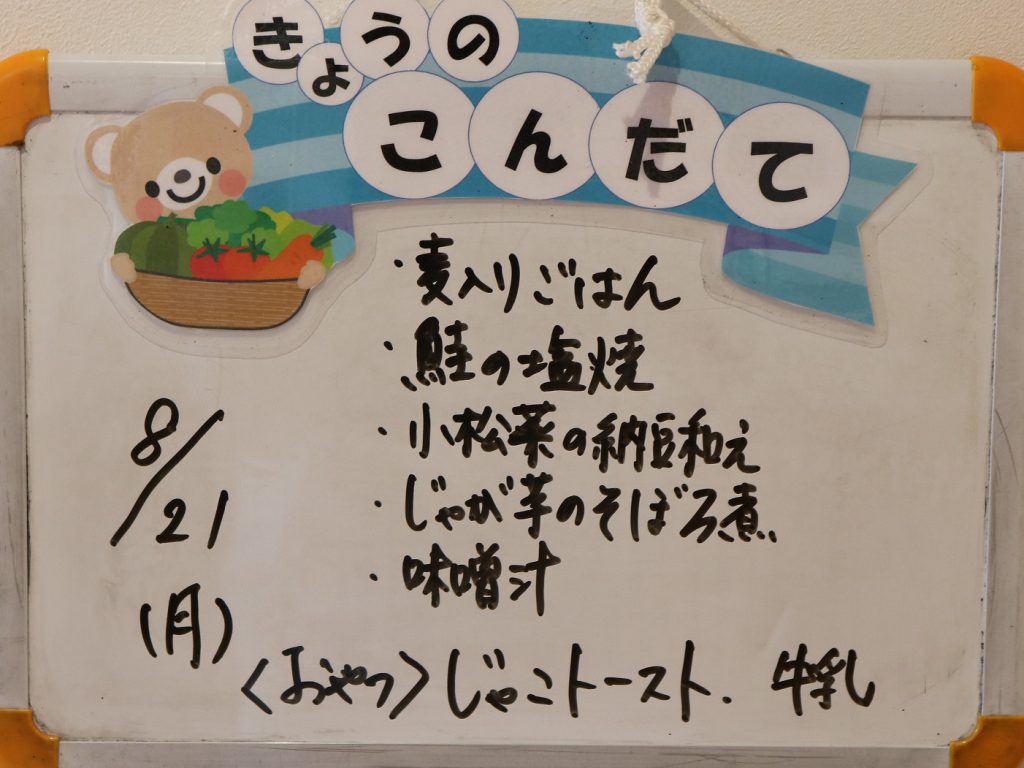 きょうの
こんだて
・麦入りごはん
・鮭の塩焼
・小松菜の納豆和え
・じゃが芋のそぼろ煮
・味噌汁
8/21
(月)
〈おやつ〉じゃこトースト. 牛乳